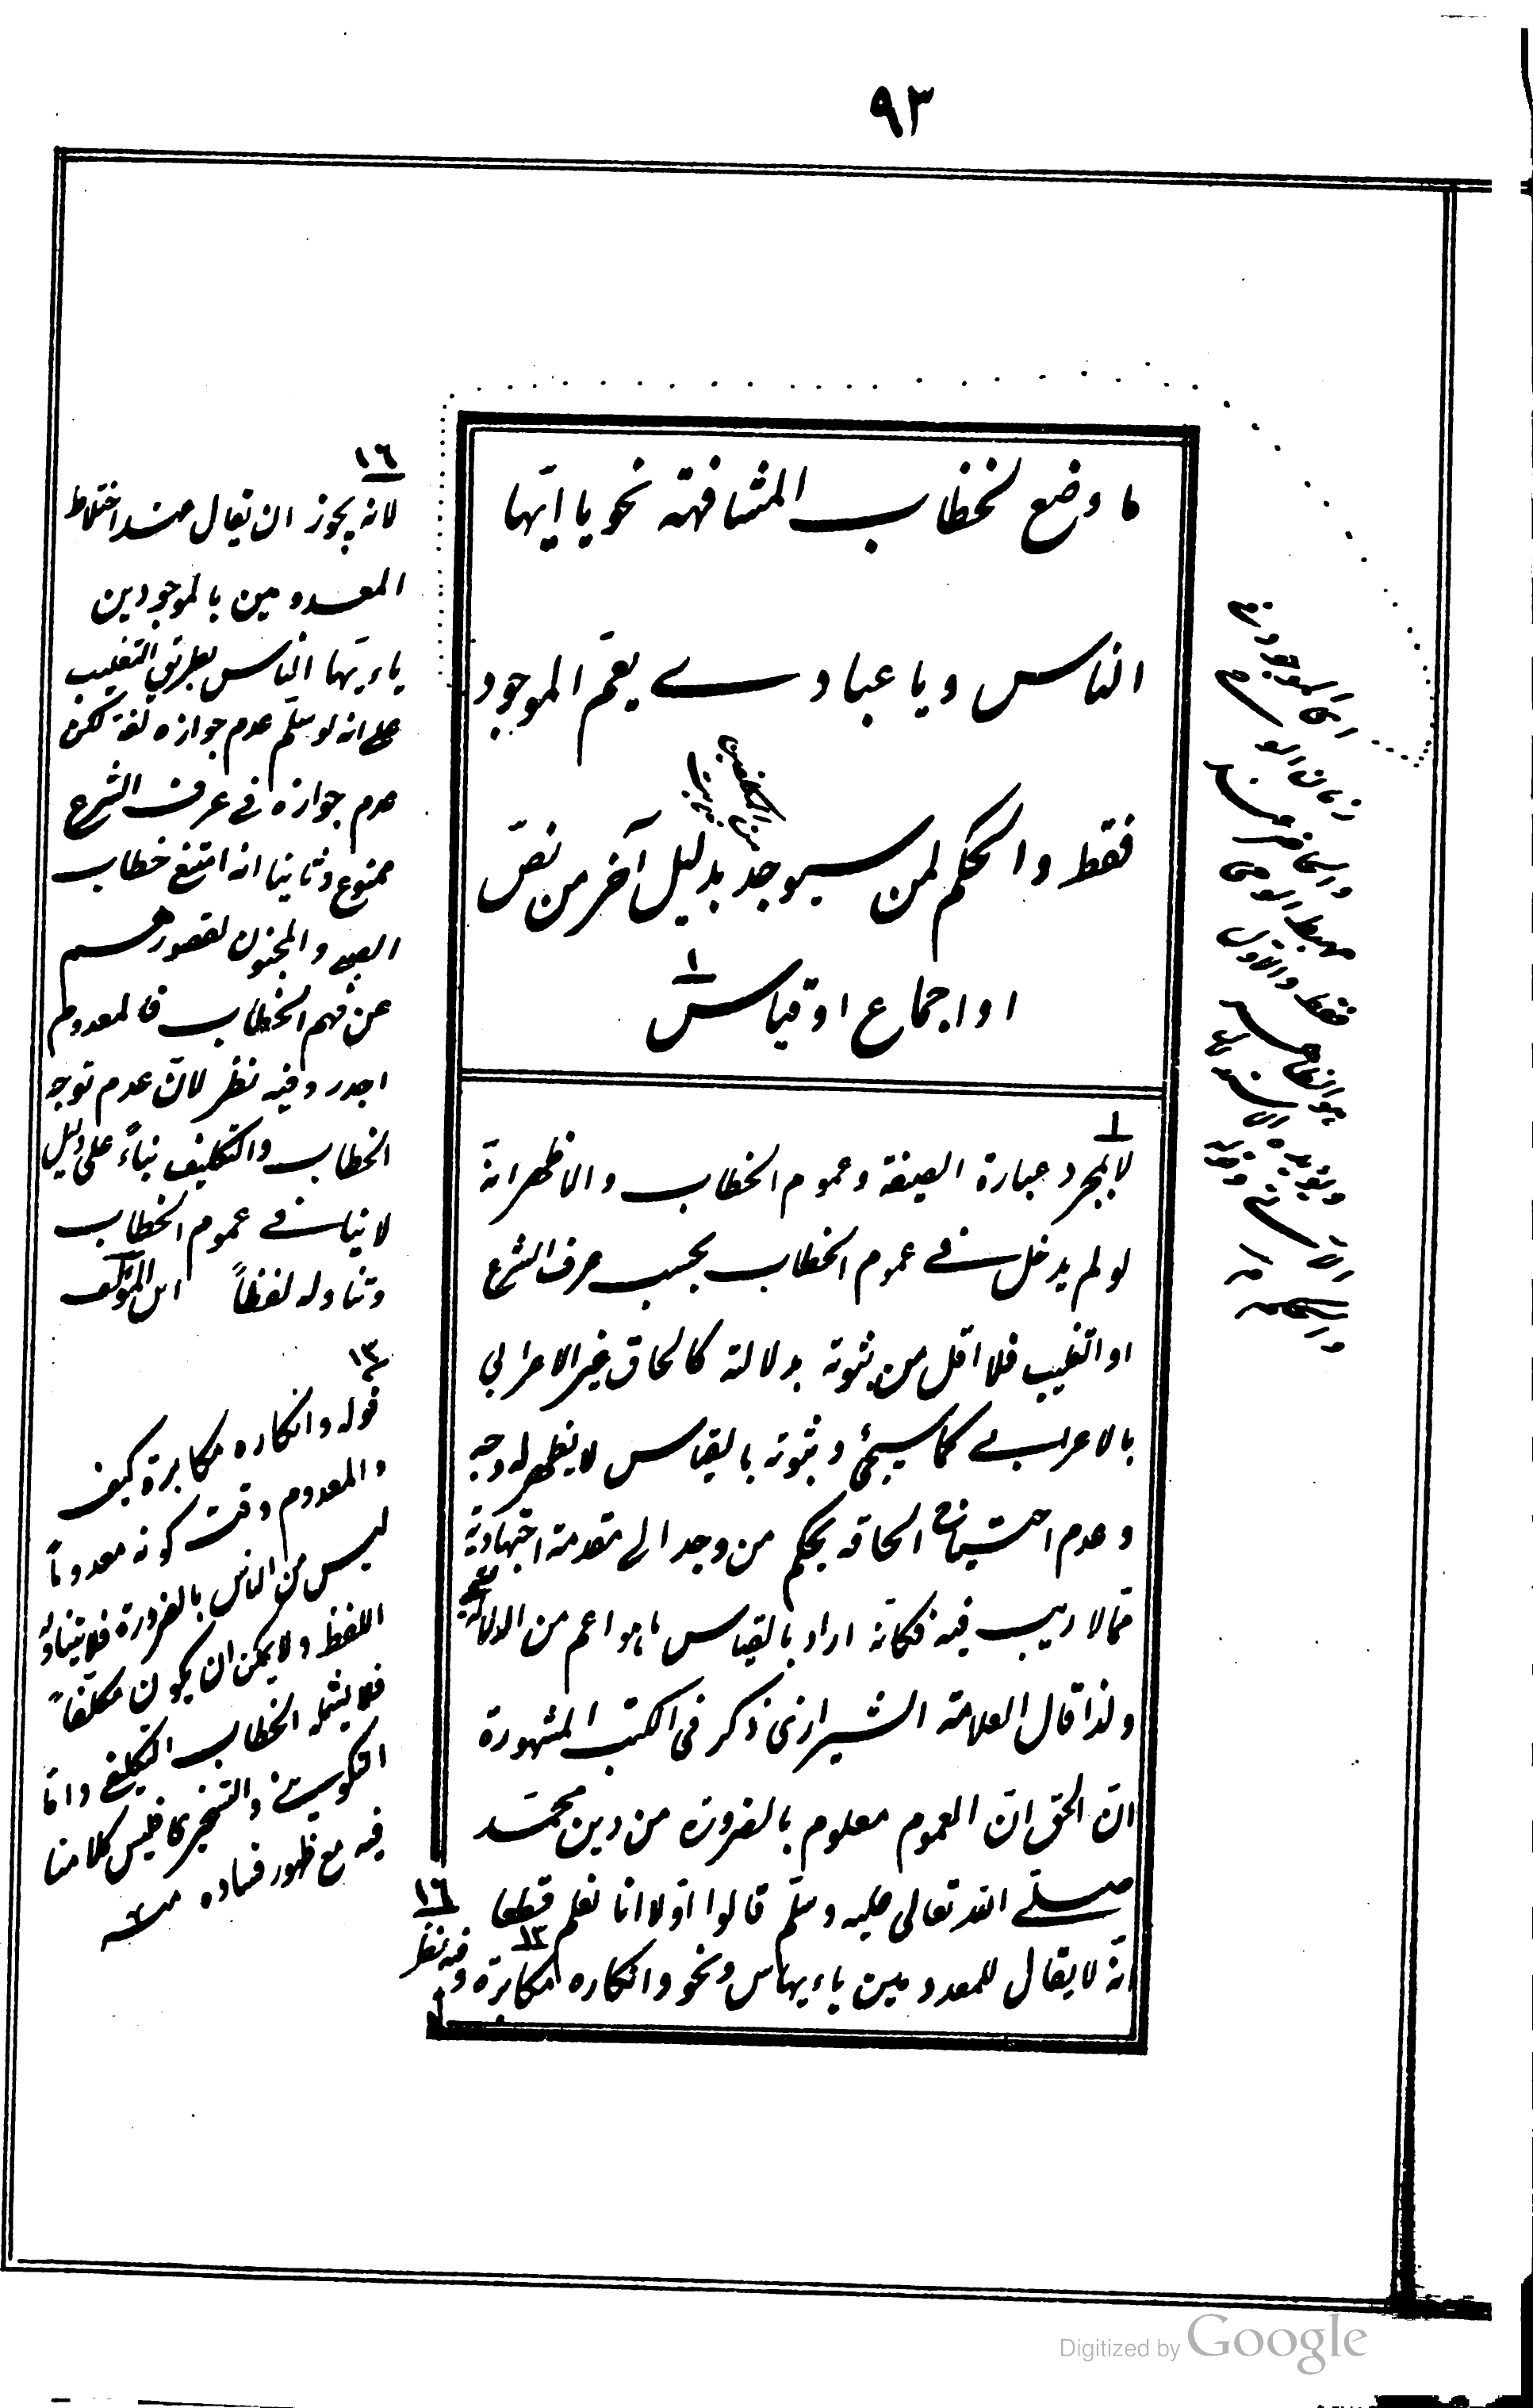 ٩٣
ما وضع لخطاب المشافهة نحو يا ايّها
الناس ويا عبادے يعمّ الموجود
فقط والحكم لمن سيوجد بدليل آخر من نصّ
من المكلفين
او اجماع او قياس
١
١
لا بمجرد عبارة الصيغة وعموم الخطاب والاظهر انه
لو لم يدخل فے عموم الخطاب بحسب عرف الشرع
او التغليب فلا اقل من ثبوته بدلالة كالحاق غير الاعرابي
بالاعرابے كما سيجئ وثبوته بالقياس لا يظهر له وجه
وعدم احتياج الحاقه بحكم من وجد الى مقدمة اجتهادية
ممّا لا ريب فيه فكانّه اراد بالقياس ما هو اعم من الدلالة
ولذا قال العلامة الشيرازى ذكر فى الكتب المشهورة
انّ الحق انّ العموم معلوم بالضرورة من دين محمّد
صلّے الله تعالى عليه وسلّم قالوا اوّلا انا نعلم قطعا
انّه لا يقال للمعدومين ياءيهاس ونحو وانكاره مكابرة وفيه نظر
١٣
١٦
١٦
لانه يجوز ان يقال عند اختلاط
المعدومين بالموجودين
ياءيّها الناس بطريق التغليب
علے انه لو سلّم عدم جوازه لغة لكن
عدم جوازه فے عرف الشرع
ممنوع وثانيا انه امتنع خطاب
الصبے والمجنون لقصورهم
عن فهم الخطاب فالمعدوم
اجدر وفيه نظر لانّ عدم توجه
الخطاب والتكليف بناءً على دليل
لا ينافے عموم الخطاب
وتناوله لفظاً من المؤلف
١٣
قوله وانكاره مكابرة كيف
والمعدوم وقت كونه معدوماً
ليس من الناس بالضرورة فلا يتناوله
اللفظ ولا يمكن ان يكون مكلّفاً
فلا يشمله الخطاب التكليفے وامّا
التكوينے والتسخيرى فليس كلامنا
فيه مع ظهور فساده منه
اى الموجود فى
زمان
والحاضر عند
مهبط الوحى
فقط والاول
Digitized by Google